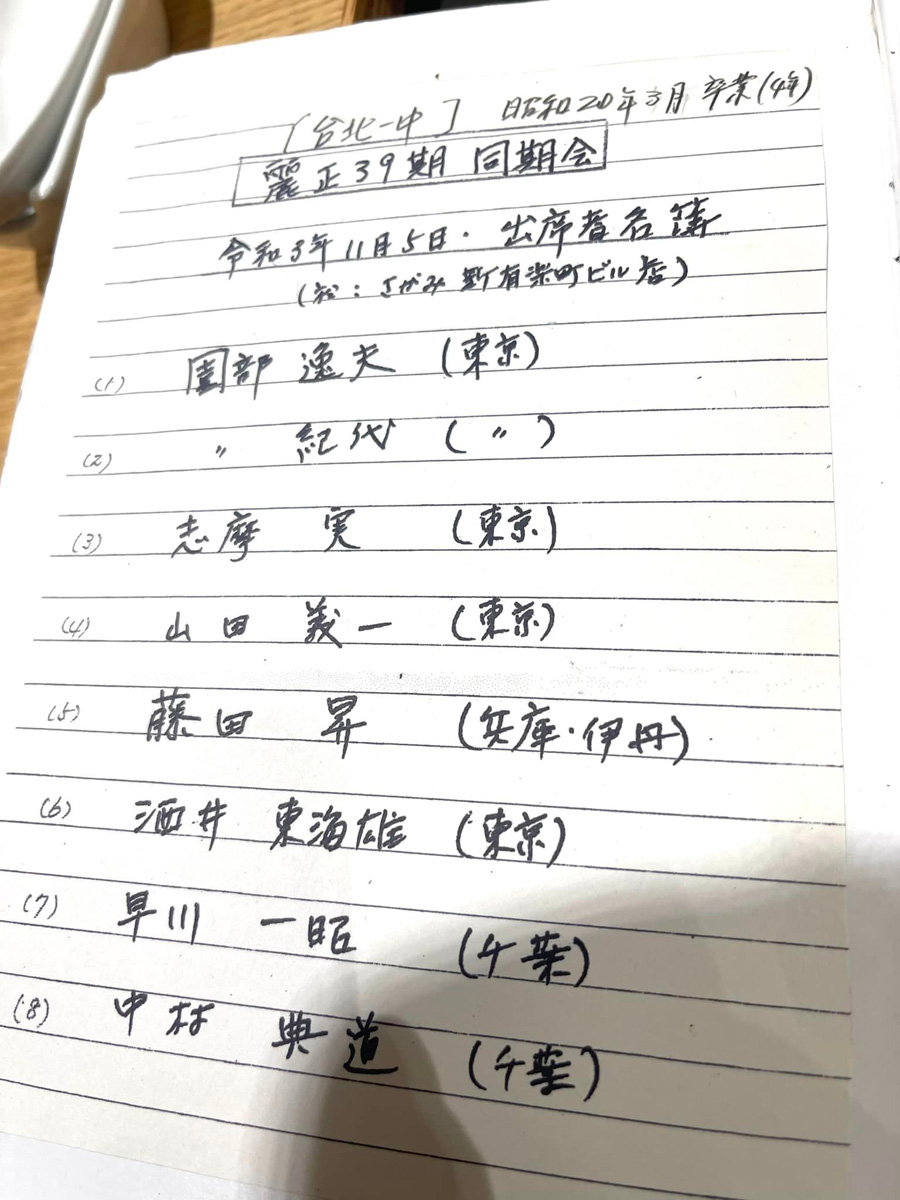 [台北一中] 昭和20年3月 卒業(4年)
麗正39期 同期会
令和3年11月5日・出席者名簿
(於:さがみ 新有楽町ビル店)
(1) 園部 逸夫 (東京)
(2) 〃 紀代 (〃)
(3) 志摩 実 (東京)
(4) 山田 義一 (東京)
(5) 藤田 昇 (兵庫・伊丹)
(6) 酒井 東海雄 (東京)
(7) 早川 一昭 (千葉)
(8) 中村 典道 (千葉)